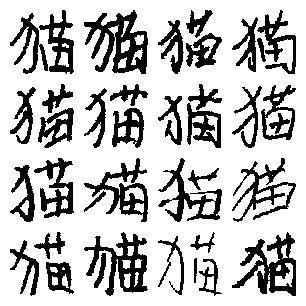 猫猫猫猫
猫猫猫猫
猫猫猫猫
猫猫猫猫